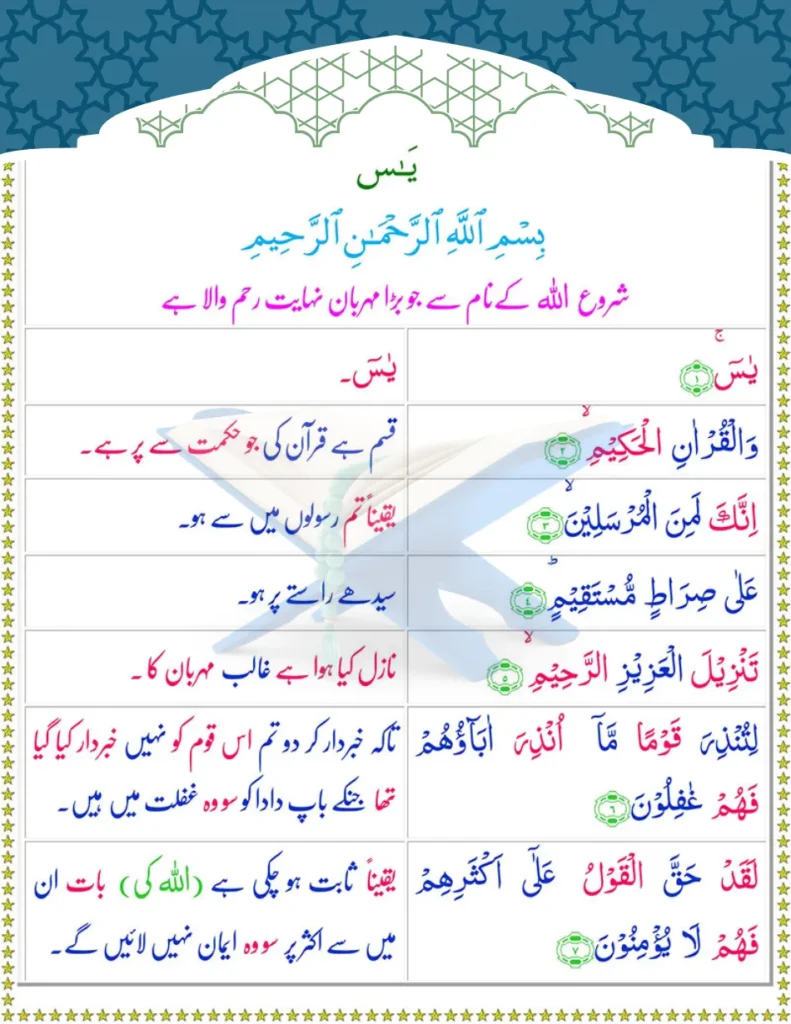 يَـٰسٓ
بِسْمِ ٱللَّهِ ٱلرَّحْمَـٰنِ ٱلرَّحِيمِ
شروع اللہ کے نام سے جو بڑا مہربان نہایت رحم والا ہے
يٰسٓ ۚ ﴿١﴾
يٰسٓ۔
وَالْقُرْاٰنِ الْحَكِيْمِ ۙ ﴿٢﴾
قسم ہے قرآن کی جو حکمت سے پر ہے۔
اِنَّكَ لَمِنَ الْمُرْسَلِيْنَ ۙ ﴿٣﴾
یقیناً تم رسولوں میں سے ہو۔
عَلٰى صِرَاطٍ مُّسْتَقِيْمٍ ؕ ﴿٤﴾
سیدھے راستے پر ہو۔
تَنْزِيْلَ الْعَزِيْزِ الرَّحِيْمِ ۙ ﴿٥﴾
نازل کیا ہوا ہے غالب مہربان کا۔
لِتُنْذِرَ قَوْمًا مَّاۤ اُنْذِرَ اٰبَآؤُهُمْ
فَهُمْ غٰفِلُوْنَ ﴿٦﴾
تاکہ خبردار کر دو تم اس قوم کو نہیں خبردار کیا گیا
تھا جنکے باپ دادا کو سو وہ غفلت میں ہیں۔
لَقَدْ حَقَّ الْقَوْلُ عَلٰٓى اَكْثَرِهِمْ
فَهُمْ لَا يُؤْمِنُوْنَ ﴿٧﴾
یقیناً ثابت ہو چکی ہے (اللہ کی) بات ان
میں سے اکثر پر سو وہ ایمان نہیں لائیں گے۔